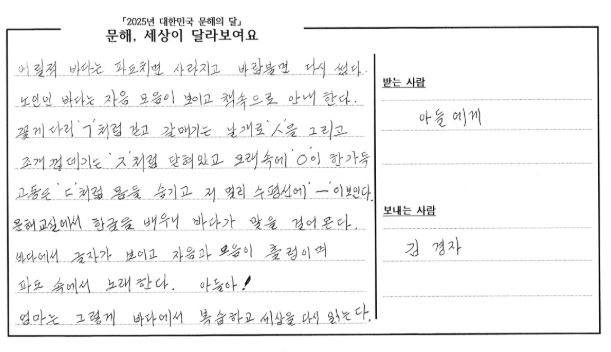 「2025년 대한민국 문해의 달」
문해, 세상이 달라보여요
어릴적 바다는 파도치면 사라지고 바람불면 다시 썼다.
노인인 바다는 자음 모음이 보이고 책속으로 안내 한다.
꽃게 다리 'ㄱ'처럼 걷고 갈매기는 날개로 'ㅅ'을 그리고
조개 껍데기는 'ㅈ'처럼 닫혀있고 모래속에 'ㅇ'이 한가득
고동은 'ㄷ'처럼 몸을 숨기고 저 멀리 수평선에 'ㅡ'이 보인다.
문해교실에서 한글을 배우니 바다가 말을 걸어 온다.
바다에서 글자가 보이고 자음과 모음이 출렁이며
파도 속에서 노래한다. 아들아!
엄마는 그렇게 바다에서 복습하고 세상을 다시 읽는다.
받는 사람
아들에게
보내는 사람
김 경자